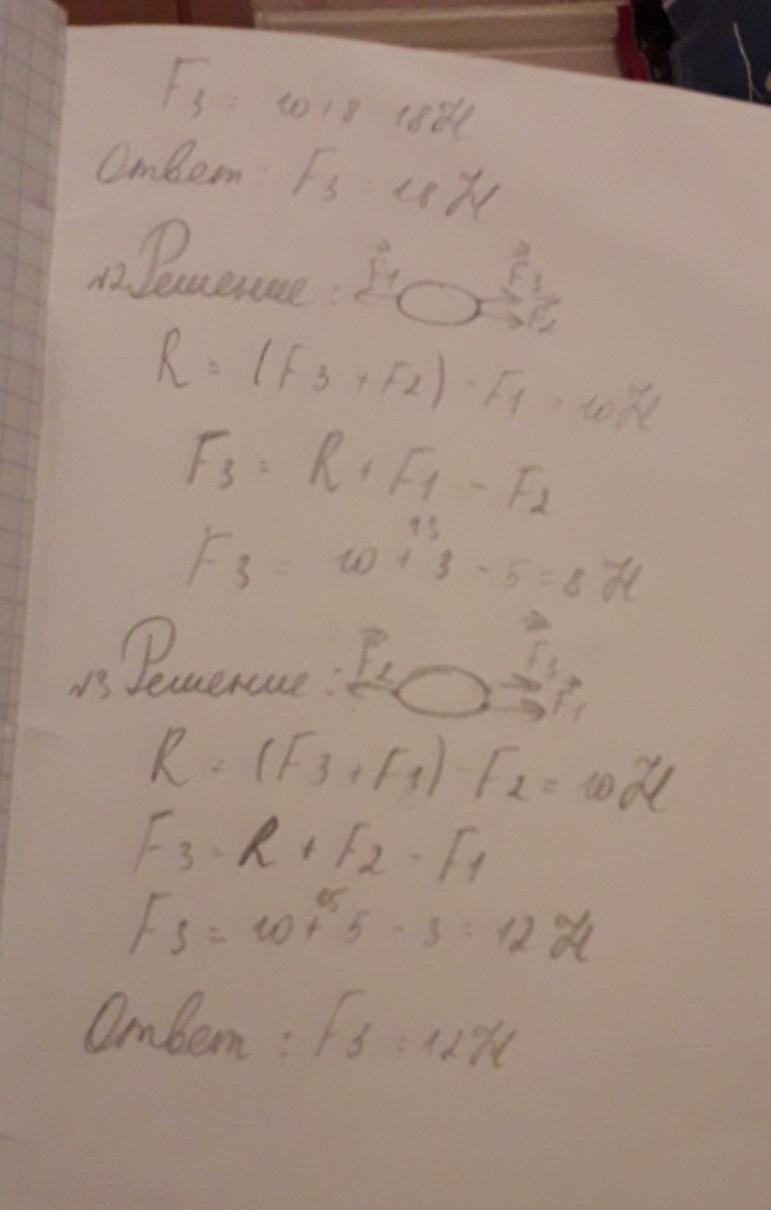 F3 = 10+8 = 18 Н
Ответ: F3 = 18 Н
№2 Решение: F1 F3 F2
R = (F3 + F2) - F1 = 10 Н
F3 = R + F1 - F2
13
F3 = 10 + 3 - 5 = 8 Н
№3 Решение: F2 F3 F1
R = (F3 + F1) - F2 = 10 Н
F3 = R + F2 - F1
15
F3 = 10 + 5 - 3 = 12 Н
Ответ: F3 = 12 Н